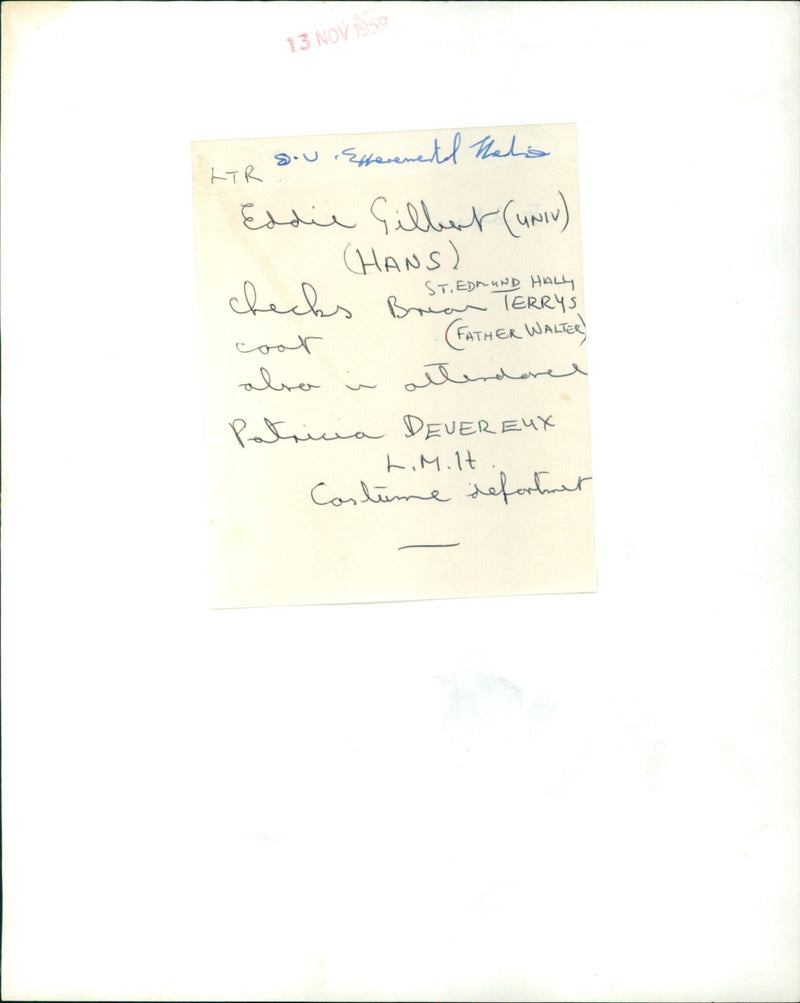 13 NOV 1959
O.U. Experimental Theatre
LTR
Eddie Gilbert (UNIV)
(HANS)
ST. EDMUND HALL
checks Brian TERRYS
coat (FATHER WALTER)
also in attendance
Patricia DEVEREUX
L.M.H.
Costume department